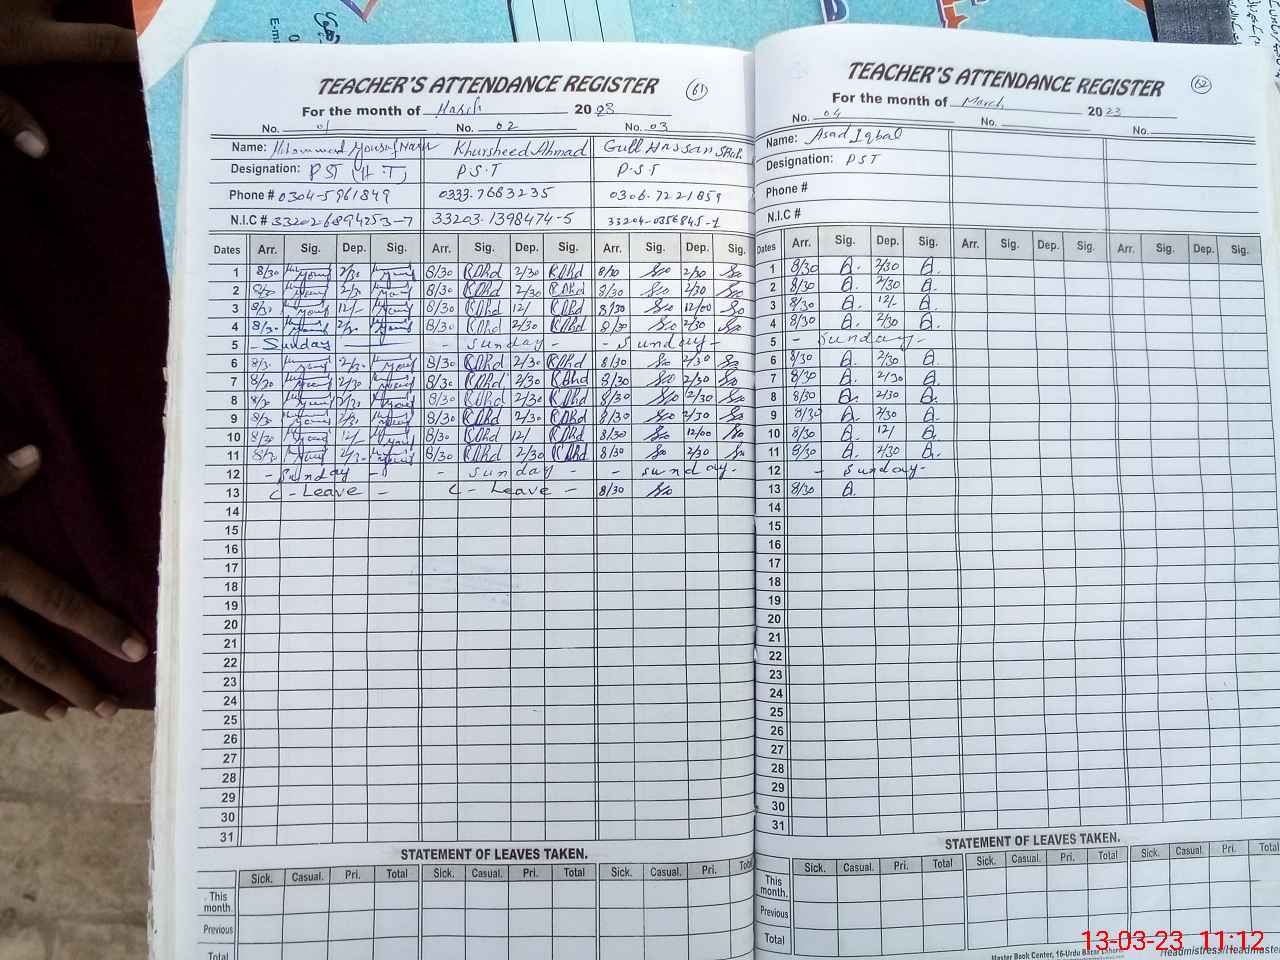 TEACHER'S ATTENDANCE REGISTER
61
For the month of March 2023
No. 01 No. 02 No. 03
Name: Mohammad Yousaf Khursheed Ahmad Gull Hassan Shah
Designation: PST (H.T) P.S.T P.S.T
Phone # 0304-5961849 0333.7663235 0306.7221859
N.I.C # 33203.1398474-5 33204-0356845-1
Dates Arr. Sig. Dep. Sig. Arr. Sig. Dep. Sig. Arr. Sig. Dep. Sig.
1 8/30 2/30 8/30 KAhd 2/30 KAhd 8/30 2/30
2 8/30 2/30 8/30 KAhd 2/30 KAhd 8/30 2/30
3 8/30 12/- 8/30 KAhd 12/ KAhd 8/30 12/00
4 8/30 2/30 8/30 KAhd 2/30 KAhd 8/30 2/30
5 - Sunday - - Sunday - - Sunday -
6 8/30 2/30 8/30 KAhd 2/30 KAhd 8/30 2/30
7 8/30 2/30 8/30 KAhd 2/30 KAhd 8/30 2/30
8 8/30 2/30 8/30 KAhd 2/30 KAhd 8/30 2/30
9 8/30 2/30 8/30 KAhd 2/30 KAhd 8/30 2/30
10 8/30 12/- 8/30 KAhd 12/ KAhd 8/30 12/00
11 8/30 2/30 8/30 KAhd 2/30 KAhd 8/30 2/30
12 - Sunday - - Sunday - - Sunday -
13 C - Leave - C - Leave - 8/30
14
15
16
17
18
19
20
21
22
23
24
25
26
27
28
29
30
31
STATEMENT OF LEAVES TAKEN.
Sick. Casual. Pri. Total Sick. Casual. Pri. Total Sick. Casual. Pri. Total
This month.
Previous
Total
TEACHER'S ATTENDANCE REGISTER
62
For the month of March 2023
No. 04 No. No.
Name: Asad Iqbal
Designation: PST
Phone #
N.I.C #
Dates Arr. Sig. Dep. Sig. Arr. Sig. Dep. Sig. Arr. Sig. Dep. Sig.
1 8/30 A. 2/30 A.
2 8/30 A. 2/30 A.
3 8/30 A. 12/- A.
4 8/30 A. 2/30 A.
5 - Sunday -
6 8/30 A. 2/30 A.
7 8/30 A. 2/30 A.
8 8/30 A. 2/30 A.
9 8/30 A. 2/30 A.
10 8/30 A. 12/ A.
11 8/30 A. 2/30 A.
12 - Sunday -
13 8/30 A.
14
15
16
17
18
19
20
21
22
23
24
25
26
27
28
29
30
31
STATEMENT OF LEAVES TAKEN.
Sick. Casual. Pri. Total Sick. Casual. Pri. Total Sick. Casual. Pri. Total
This month.
Previous
Total
Master Book Center, 16-Urdu Bazar Lahore
Headmistress/Headmaster
13-03-23 11:12